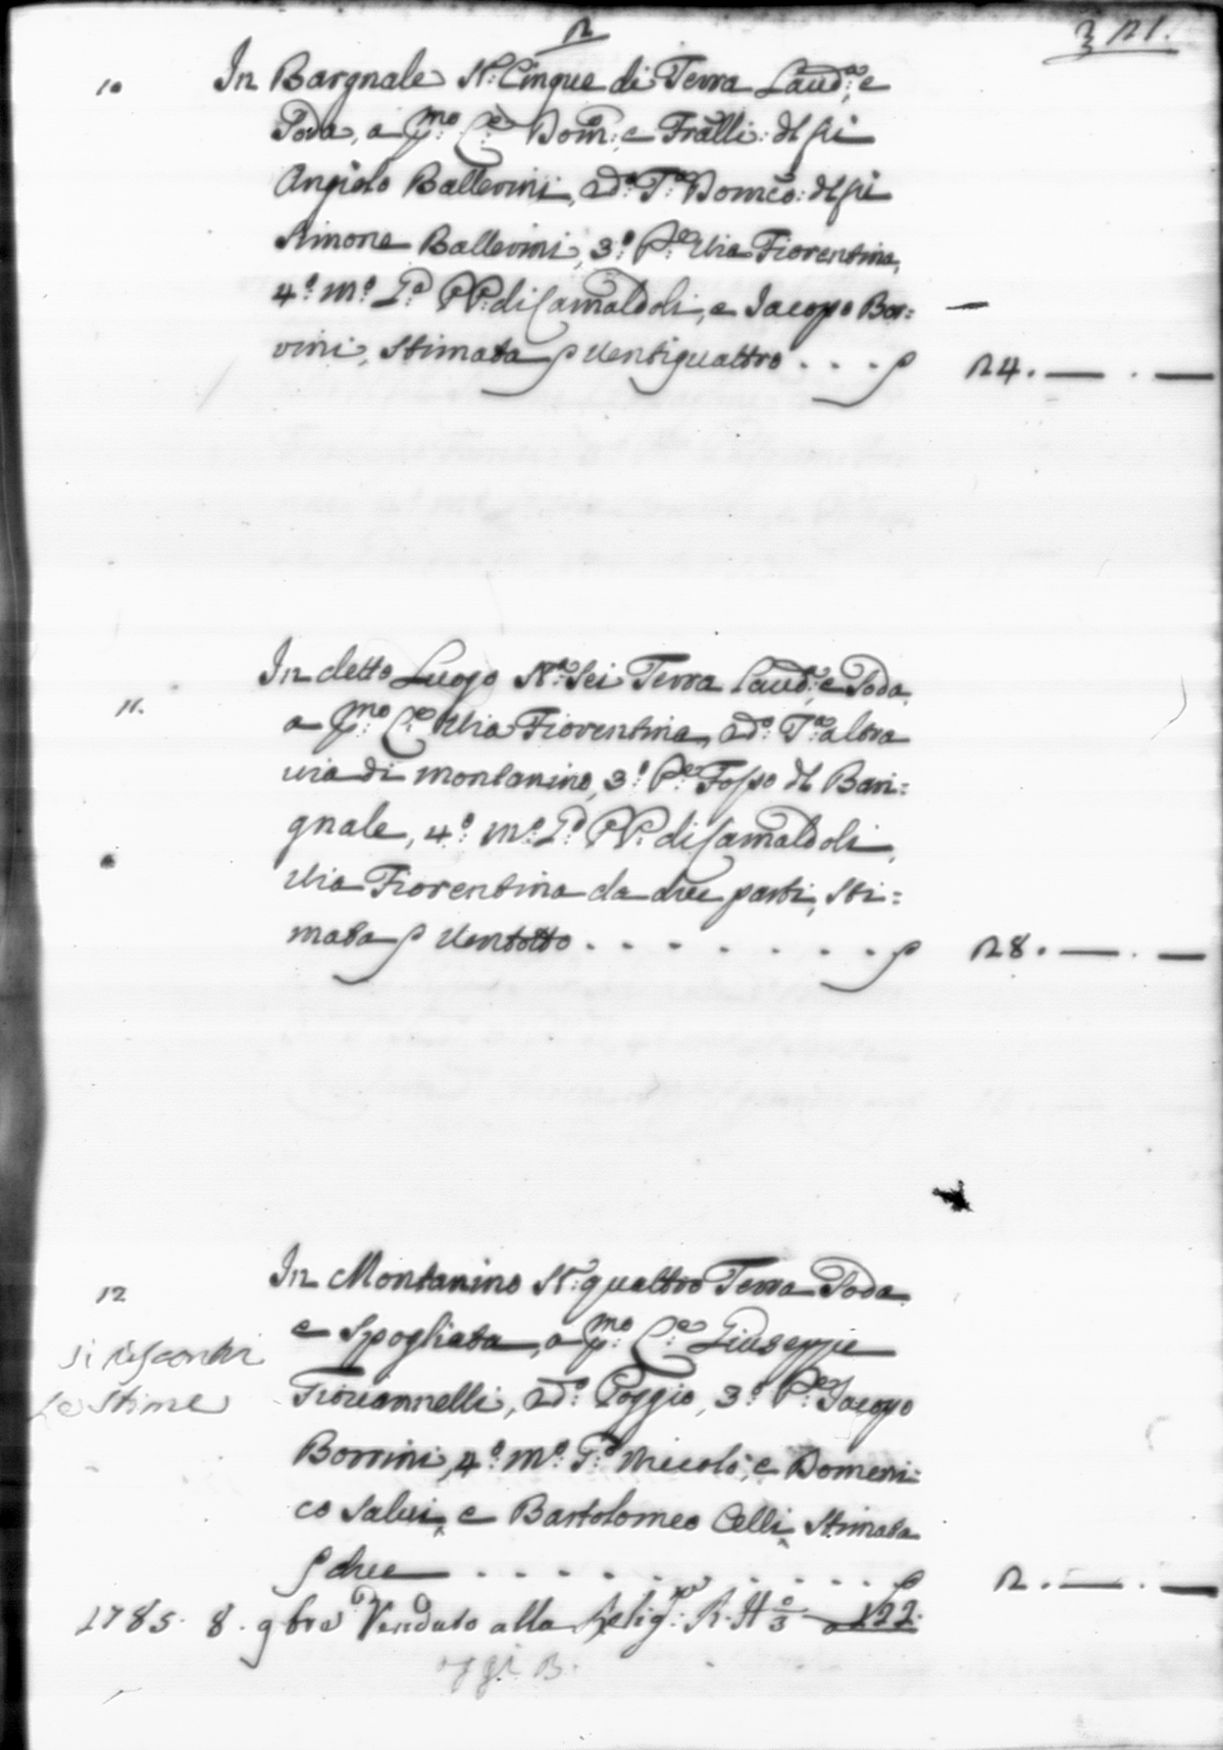 2
321.
10 In Bargnale N.º Cinque di Terra Laud.ª, e
Soda, a p.mo C.e Dom.: e Fralli: del fù
Angiolo Ballerini, 2d.º T.ª Domẽo: del fù
Simone Ballerini, 3.º P.e Via Fiorentina,
4.º m.º L.º PP. di Camaldoli, e Jacopo Bor=
rini, Stimata ƒ Ventiquattro . . . ƒ 24. — . —
11. In detto Luogo N.º Sei Terra Laud.ª e Soda,
a p.mo C.e Via Fiorentina, 2d.º T.ª altra
via di montanino, 3.º P.e Fosso del Bari=
gnale, 4.º m.º L.º PP. di Camaldoli,
Via Fiorentina da due parti, Sti=
mata ƒ Ventotto . . . . . . . . ƒ 28. — . —
12 In Montanino N.º quattro Terra Soda
e Spogliata, a p.mo C.e Giuseppe
Si riscontri
Le Stime
Fiorannelli, 2d.º Poggio, 3.º P.e Jacopo
Borrini, 4.º m.º T.º Niccolò, e Domeni=
co Salvi, e Bartolomeo Celli, Stimata
ƒ due . . . . . . . . . ƒ 2. — . —
1785. 8. 9bre Venduto alla Relig.: R. 122.
oggi B.